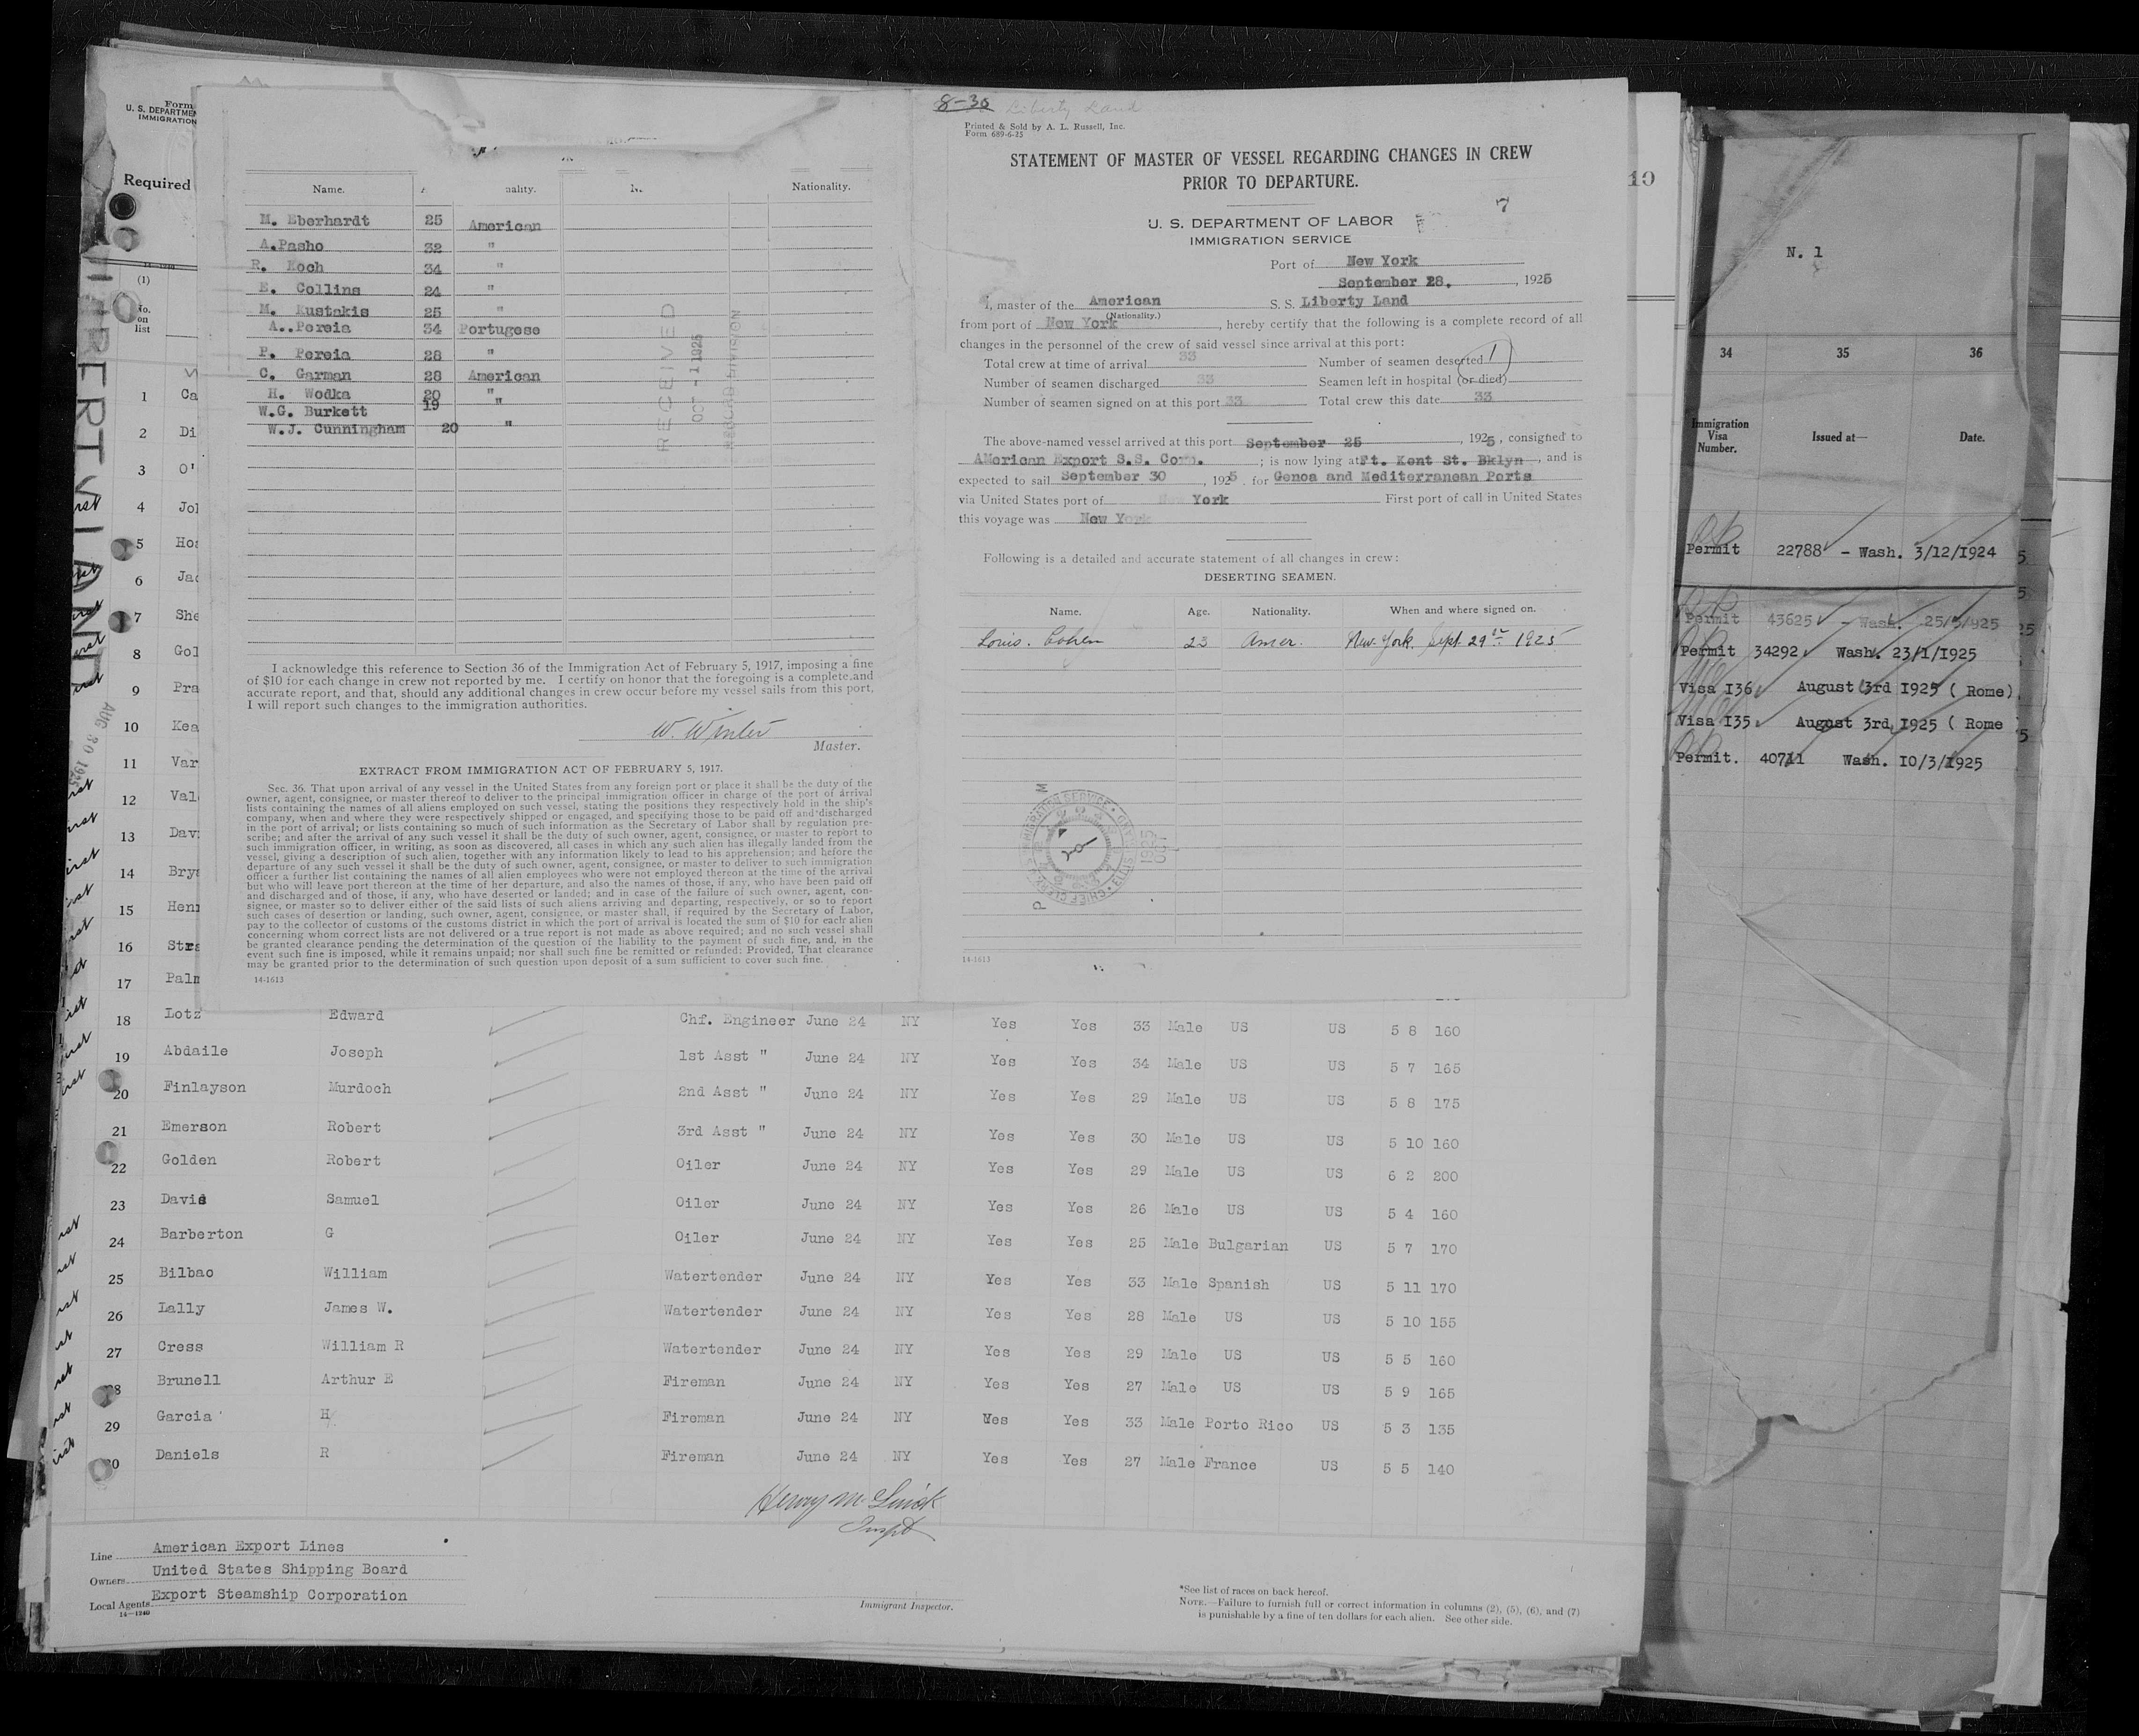 Form
U. S. DEPARTMEN
IMMIGRATION
Required
14-1240
(1)
No.
on
list
1 Ca
2 Di
3 O'
4 Jol
5 Hos
6 Jac
7 She
8 Gol
9 Pra
10 Kea
11 Var
12 Val
13 Dav
14 Brys
15 Hen
16 Stra
17 Palm
LIBERTY LAND
AUG 30 1925
Name. nality. Nationality.
M. Eberhardt 25 American
A.Pasho 32 "
R. Koch 34 "
E. Collins 24 "
M. Eustakis 25 "
A..Pereia 34 Portugese
P. Pereia 28 "
C. Garman 28 American
H. Wodka 20 "
W.G. Burkett 19 "
W.J. Cunningham 20 "
RECEIVED
OCT - 1 1925
RECORD DIVISION
I acknowledge this reference to Section 36 of the Immigration Act of February 5, 1917, imposing a fine
of $10 for each change in crew not reported by me. I certify on honor that the foregoing is a complete and
accurate report, and that, should any additional changes in crew occur before my vessel sails from this port,
I will report such changes to the immigration authorities.
W. Winter
Master.
EXTRACT FROM IMMIGRATION ACT OF FEBRUARY 5, 1917.
Sec. 36. That upon arrival of any vessel in the United States from any foreign port or place it shall be the duty of the
owner, agent, consignee, or master thereof to deliver to the principal immigration officer in charge of the port of arrival
lists containing the names of all aliens employed on such vessel, stating the positions they respectively hold in the ship's
company, when and where they were respectively shipped or engaged, and specifying those to be paid off and discharged
in the port of arrival; or lists containing so much of such information as the Secretary of Labor shall by regulation pre-
scribe; and after the arrival of any such vessel it shall be the duty of such owner, agent, consignee, or master to report to
such immigration officer, in writing, as soon as discovered, all cases in which any such alien has illegally landed from the
vessel, giving a description of such alien, together with any information likely to lead to his apprehension; and before the
departure of any such vessel it shall be the duty of such owner, agent, consignee, or master to deliver to such immigration
officer a further list containing the names of all alien employees who were not employed thereon at the time of the arrival
but who will leave port thereon at the time of her departure, and also the names of those, if any, who have been paid off
and discharged and of those, if any, who have deserted or landed; and in case of the failure of such owner, agent, con-
signee, or master so to deliver either of the said lists of such aliens arriving and departing, respectively, or so to report
such cases of desertion or landing, such owner, agent, consignee, or master shall, if required by the Secretary of Labor,
pay to the collector of customs of the customs district in which the port of arrival is located the sum of $10 for each alien
concerning whom correct lists are not delivered or a true report is not made as above required; and no such vessel shall
be granted clearance pending the determination of the question of the liability to the payment of such fine, and, in the
event such fine is imposed, while it remains unpaid; nor shall such fine be remitted or refunded: Provided, That clearance
may be granted prior to the determination of such question upon deposit of a sum sufficient to cover such fine.
14-1613
8-30 Liberty Land
Printed & Sold by A. L. Russell, Inc.
Form 689-6-25
STATEMENT OF MASTER OF VESSEL REGARDING CHANGES IN CREW
PRIOR TO DEPARTURE.
7
U. S. DEPARTMENT OF LABOR
IMMIGRATION SERVICE
Port of New York
September 28, , 1925
I, master of the American S. S. Liberty Land
(Nationality.)
from port of New York , hereby certify that the following is a complete record of all
changes in the personnel of the crew of said vessel since arrival at this port:
Total crew at time of arrival 33 Number of seamen deserted 1
Number of seamen discharged 33 Seamen left in hospital (or died)
Number of seamen signed on at this port 33 Total crew this date 33
The above-named vessel arrived at this port September 25 , 1925 , consigned to
AMerican Export S.S. Corp. ; is now lying at Ft. Kent St. Bklyn , and is
expected to sail September 30 , 1925 for Genoa and Mediterranean Ports
via United States port of New York First port of call in United States
this voyage was New York
Following is a detailed and accurate statement of all changes in crew:
DESERTING SEAMEN.
Name. Age. Nationality. When and where signed on.
Louis. Cohen 23 Amer. New York. Sept 29th 1925
14-1613
10
N. 1
34 35 36
Immigration
Visa
Number. Issued at— Date.
Permit 22788 - Wash. 3/12/1924
Permit 43625 - Wash. 25/5/1925
Permit 34292 Wash. 23/1/1925
Visa I36 August 3rd I925 ( Rome)
Visa I35 August 3rd I925 ( Rome
Permit. 40711 Wash. I0/3/1925
18 Lotz Edward Chf. Engineer June 24 NY Yes Yes 33 Male US US 5 8 160
19 Abdaile Joseph 1st Asst " June 24 NY Yes Yes 34 Male US US 5 7 165
20 Finlayson Murdoch 2nd Asst " June 24 NY Yes Yes 29 Male US US 5 8 175
21 Emerson Robert 3rd Asst " June 24 NY Yes Yes 30 Male US US 5 10 160
22 Golden Robert Oiler June 24 NY Yes Yes 29 Male US US 6 2 200
23 Davis Samuel Oiler June 24 NY Yes Yes 26 Male US US 5 4 160
24 Barberton G Oiler June 24 NY Yes Yes 25 Male Bulgarian US 5 7 170
25 Bilbao William Watertender June 24 NY Yes Yes 33 Male Spanish US 5 11 170
26 Lally James W. Watertender June 24 NY Yes Yes 28 Male US US 5 10 155
27 Cress William R Watertender June 24 NY Yes Yes 29 Male US US 5 5 160
28 Brunell Arthur E Fireman June 24 NY Yes Yes 27 Male US US 5 9 165
29 Garcia H Fireman June 24 NY Yes Yes 33 Male Porto Rico US 5 3 135
30 Daniels R Fireman June 24 NY Yes Yes 27 Male France US 5 5 140
Inspt
Line American Export Lines
Owners United States Shipping Board
Local Agents Export Steamship Corporation
14-1240
Immigrant Inspector.
*See list of races on back hereof.
NOTE.—Failure to furnish full or correct information in columns (2), (5), (6), and (7)
is punishable by a fine of ten dollars for each alien. See other side.